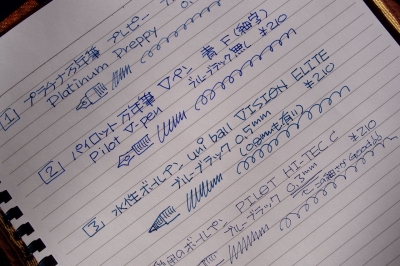 1 プラチナ万年筆 プレピー
Platinum Preppy 0.
2 パイロット万年筆 Vペン 青 F(細字)
Pilot V-pen ブルーブラック無し ¥210
3 水性ボールペン uni ball VISION ELITE
ブルーブラック 0.5mm ¥210
(0.8mmも有り)
用のボールペン PILOT HI-TEC C ¥210
ブルーブラック 0.3mm
この細さが Good!